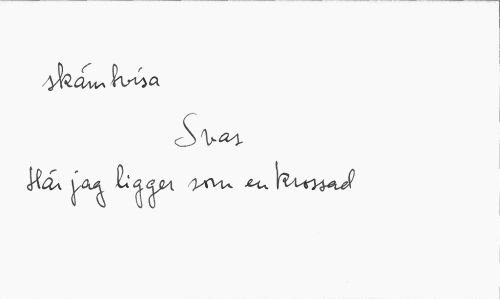 skämtvisa
Svar
Här jag ligger som en krossad